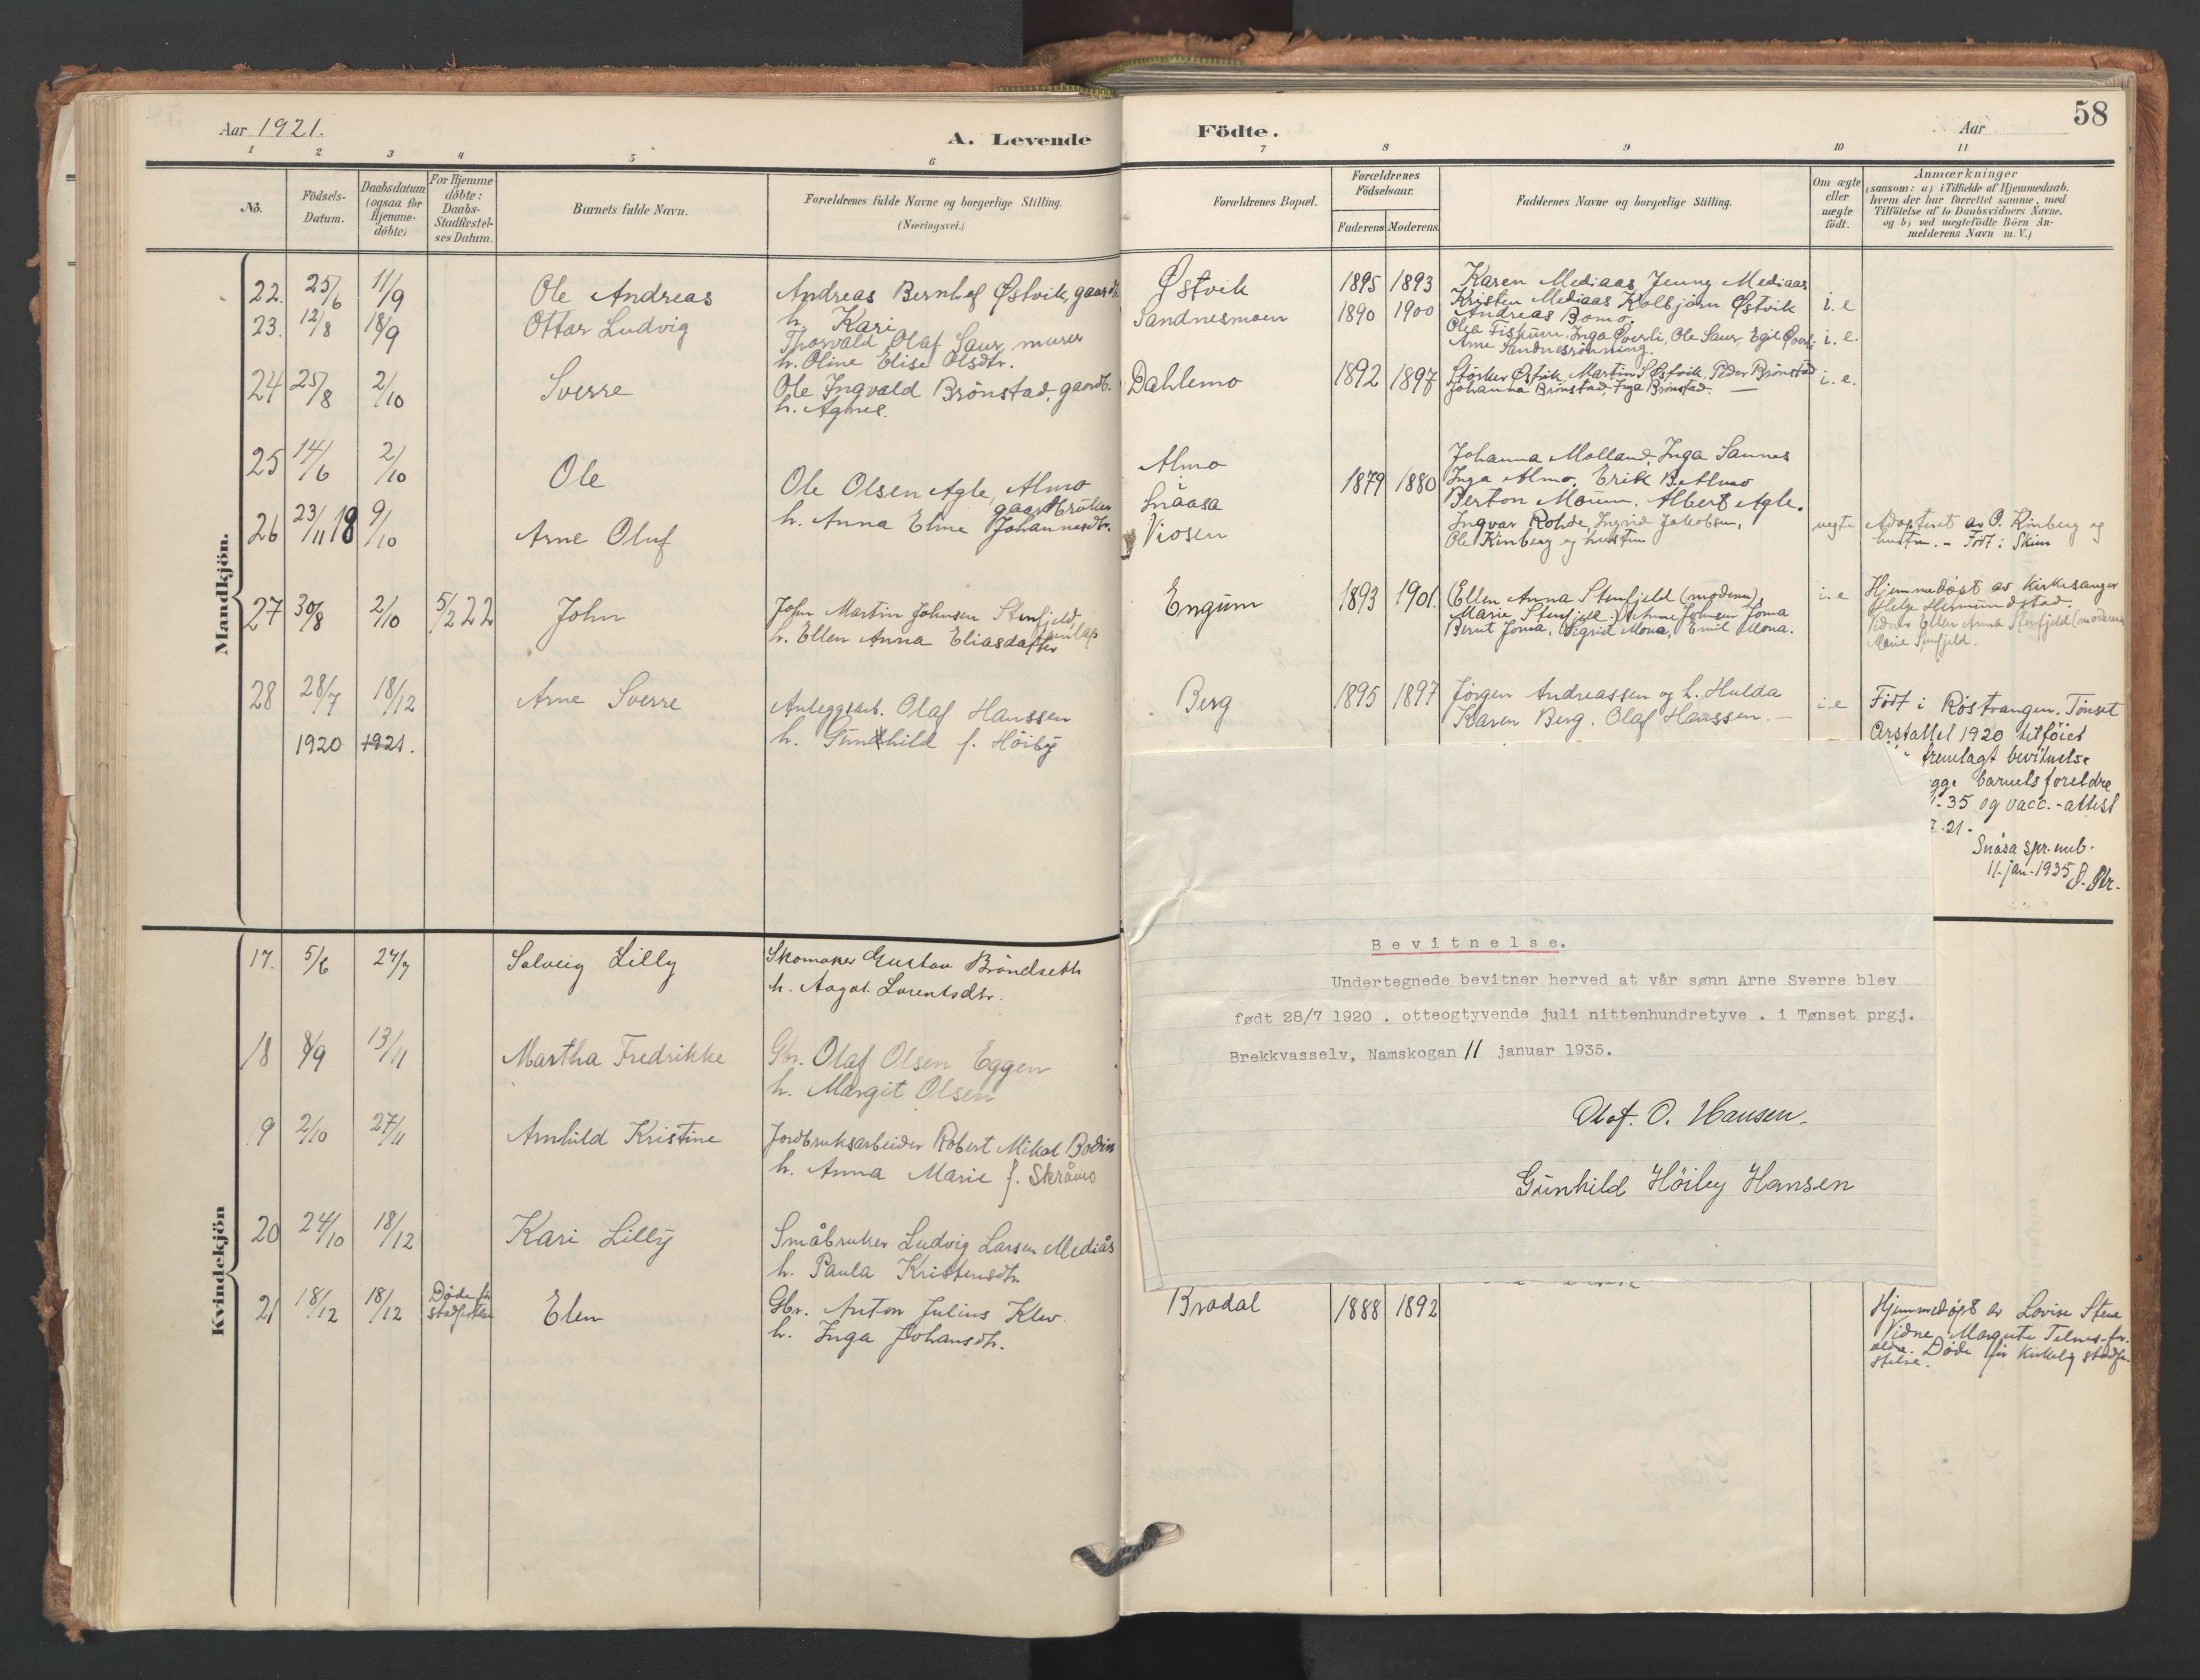 Aar 1921.
A. Levende
Födte.
Aar
58
1 2 3 4 5 6 7 8 9 10 11
No.
Födsels-
Datum.
Daabsdatum
(ogsaa for
Hjemme-
döbte)
For Hjemme
döbte:
Daabs-
Stadfæstel-
ses Datum.
Barnets fulde Navn.
Forældrenes fulde Navne og borgerlige Stilling.
(Næringsvei.)
Forældrenes Bopæl.
Forældrenes
Födselsaar.
Faderens Moderens
Faddernes Navne og borgerlige Stilling.
Om ægte
eller
uægte
födt.
Anmærkninger
(saasom: a) i Tilfælde af Hjemmedaab.
hvem der har forrettet samme, med
Tilföielse af to Daabsvidners Navne.
og b) ved uægtefödte Börn An-
melderens Navn m. V.)
Mandkjön.
22. 25/6 11/9 Ole Andreas
Andreas Bernhof Østvik, gaardb.
h. Kari
Østvik 1895 1893
Karen Mediaas Jenny Mediaas
Kristen Mediaas Kolbjörn Østvik
Andreas Bomo.
i. e
23. 12/8 18/9 Ottar Ludvig
Thorvald Olaf Saur, murer
h. Oline Elise Olsdtr.
Sandnesmoen 1890 1900
Olea Fiskum, Inga Överli, Ole Saur, Egil Överli
Arne Sandnesrönning.
i. e.
24 25/8 2/10 Sverre
Ole Ingvald Brönstad, gaardb.
h. Agnes.
Dahlemo 1892 1897
Störker Østvik, Martin S Østvik, Peder Brönstad
Johanna Brönstad, Inga Brönstad.
i. e.
25 14/6 2/10 Ole
Ole Olsen Agle, Almo
gaardbruker
h. Anna Eline Johannesdtr.
Almo
i
Snaasa
1879 1880
Johanna Molland, Inga Sannes
Inga Almo, Erik B. Almo
Berton Moum, Albert Agle.
26 23/11 18 9/10 Arne Oluf
Viosen
Ingvar Rohde, Ingrid Jakobsen,
Ole Kinberg og hustru
uegte
Adopteret av O. Kinberg og
hustru. - Født i Skien
27 30/8 2/10 5/2 22 John
John Martin Johnsen Stenfjeld,
h. Ellen Anna Eliasdatter
Engum 1893 1901.
(Ellen Anna Stenfjeld (moderen),
Marie Stenfjeld.) Anne Johnsen Joma
Bernt Joma, Sigrid Mona, Emil Mona.
i. e
Hjemmedöpt av kirkesanger
Helge Hermundstad.
Vidner Ellen Anna Stenfjeld (moderen)
Marie Stenfjeld.
28 28/7 18/12 Arne Sverre
1920 1921.
Anleggsarb. Olaf Hanssen
h. Gunhild f. Höiby
Berg 1895 1897
Jörgen Andreassen og h. Hulda
Karen Berg. Olaf Hanssen.
i. e
Født i Röstvangen, Tønset
Årstallet 1920 tilföiet
fremlagt bevitnelse
gge barnets foreldre
1-35 og vacc.-attest
7-21-
Snåsa spr. emb.
11. jan. 1935
Kvindekjön
17. 5/6 24/7 Solveig Lilly
Skomaker Gustav Bröndseth
h. Aagot Lorentsdtr.
18 8/9 13/11 Martha Fredrikke
Gbr. Olaf Olsen Eggen
h. Margit Olsen
9 2/10 27/11 Arnhild Kristine
Jordbruksarbeider Robert Mikal Bodin
h. Anna Marie f. Skråmo
20 24/10 18/12 Kari Lilly
Småbruker Ludvig Larsen Mediås
h. Paula Kristensdtr.
21 18/12 18/12 Döde för
stadfestelse
Elen
Gbr. Anton Julius Klev.
h. Inga Johansdtr.
Bradal 1888 1892
Hjemmedöpt av Lovise Stene
Vidne Margrete Telnes-for-
eldre. Döde för kirkelig stadfe-
stelse.
Bevitnelse.
Undertegnede bevitner herved at vår sønn Arne Sverre blev
født 28/7 1920 . otteogtyvende juli nittenhundretyve . i Tønset prgj.
Brekkvasselv, Namskogan 11 januar 1935.
Olof. O. Hansen.
Gunhild Höiby Hansen